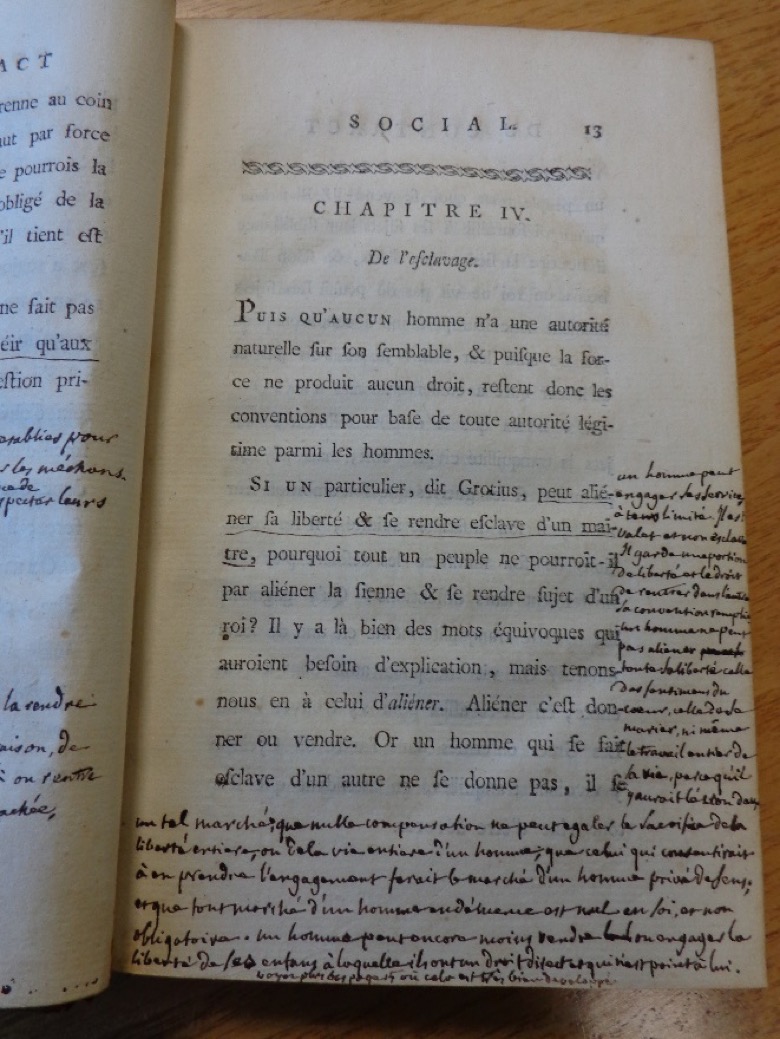 ACT
renne au coin
aut par force
e pourrois la
obligé de la
'il tient eſt
ne fait pas
éir qu'aux
eſtion pri-
établies pour
les méchans.
la rendre
aison, de
on rentre
achée,
SOCIAL. 13
CHAPITRE IV.
De l'eſclavage.
PUIS QU'AUCUN homme n'a une autorité
naturelle ſur ſon ſemblable, & puiſque la for-
ce ne produit aucun droit, reſtent donc les
conventions pour baſe de toute autorité légi-
time parmi les hommes.
SI UN particulier, dit Grotius, peut alié-
ner ſa liberté & ſe rendre eſclave d'un maî-
tre, pourquoi tout un peuple ne pourroit-il
par aliéner la ſienne & ſe rendre ſujet d'un
roi? Il y a là bien des mots équivoques qui
auroient beſoin d'explication, mais tenons-
nous en à celui d'aliéner. Aliéner c'eſt don-
ner ou vendre. Or un homme qui ſe fait
eſclave d'un autre ne ſe donne pas, il ſe
un homme peut
engager ses services
à tems limité. Il est
valet et non esclave
Il garde une portion
de liberté et le droit
de rentrer dans l'autre
sa convention remplie
un homme ne peut
pas aliener
toute sa liberté celle
des sentimens du
cœur, celle de se
marier, ni même
le travail entier de
la vie, parce qu'il
y auroit lésion dans
un tel marché; que nulle compensation ne peut egaler le sacrifice de la
liberté entiere, ou de la vie entiere d'un homme; que celui qui consentirait
à en prendre l'engagement ferait le marché d'un homme privé de sens;
et que tout marché d'un homme en démence est nul en soi, et non
obligatoire. un homme peut encore moins vendre ou engager la
liberté de ses enfans à laquelle ils ont un droit direct et qui n'est point à lui.
voyez plus bas page 15 où cela est très bien developpé